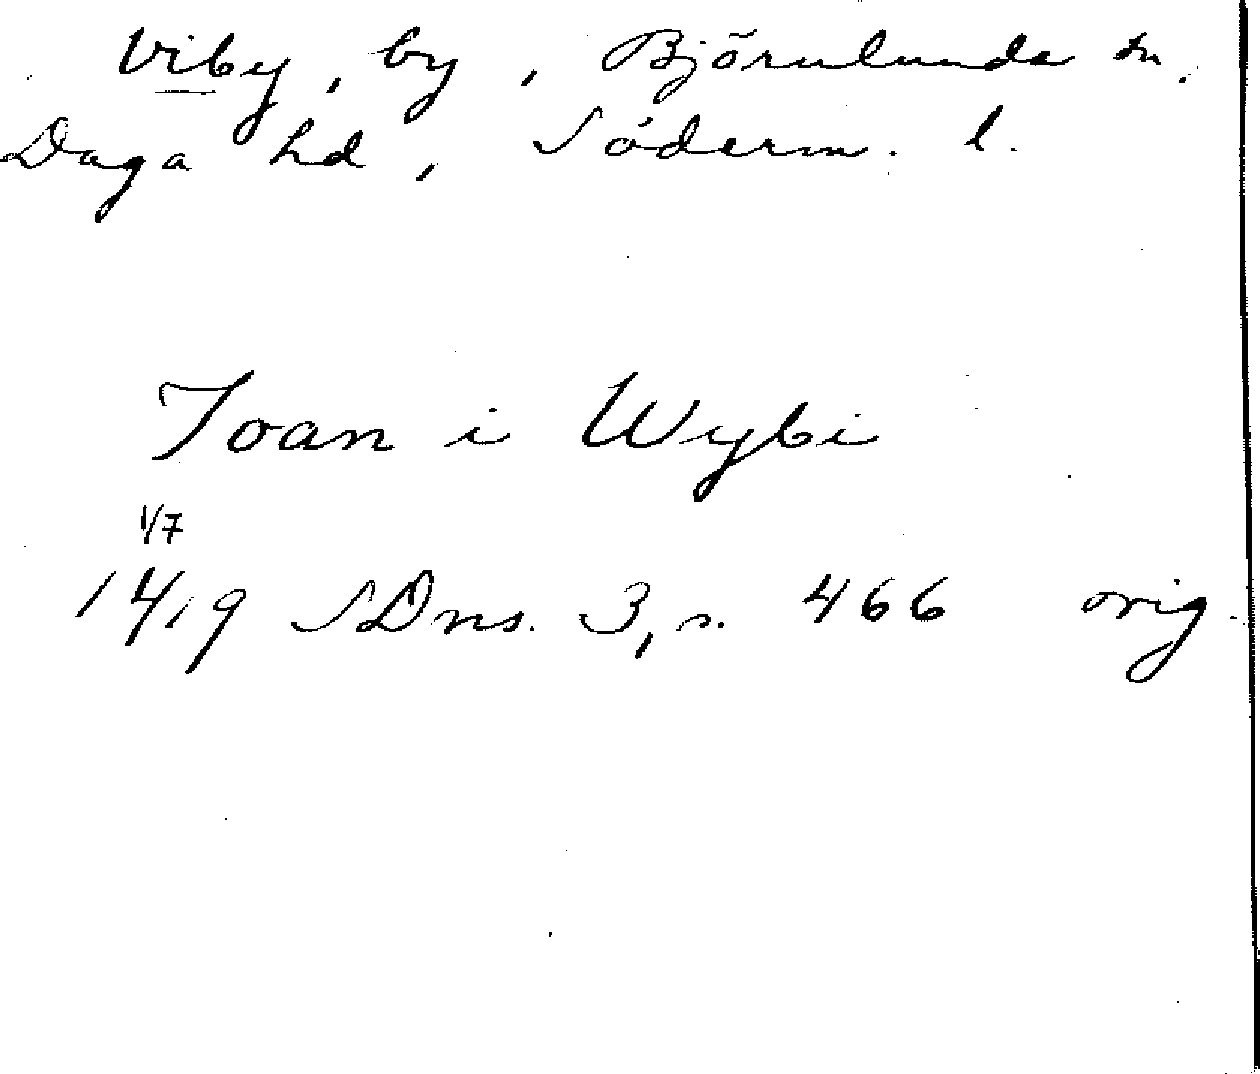 Viby, by, Björnlunda sn.
Daga hd, Söderm. l.
Joan i Wybi
1/7
1419 SDns. 3, s. 466 orig.